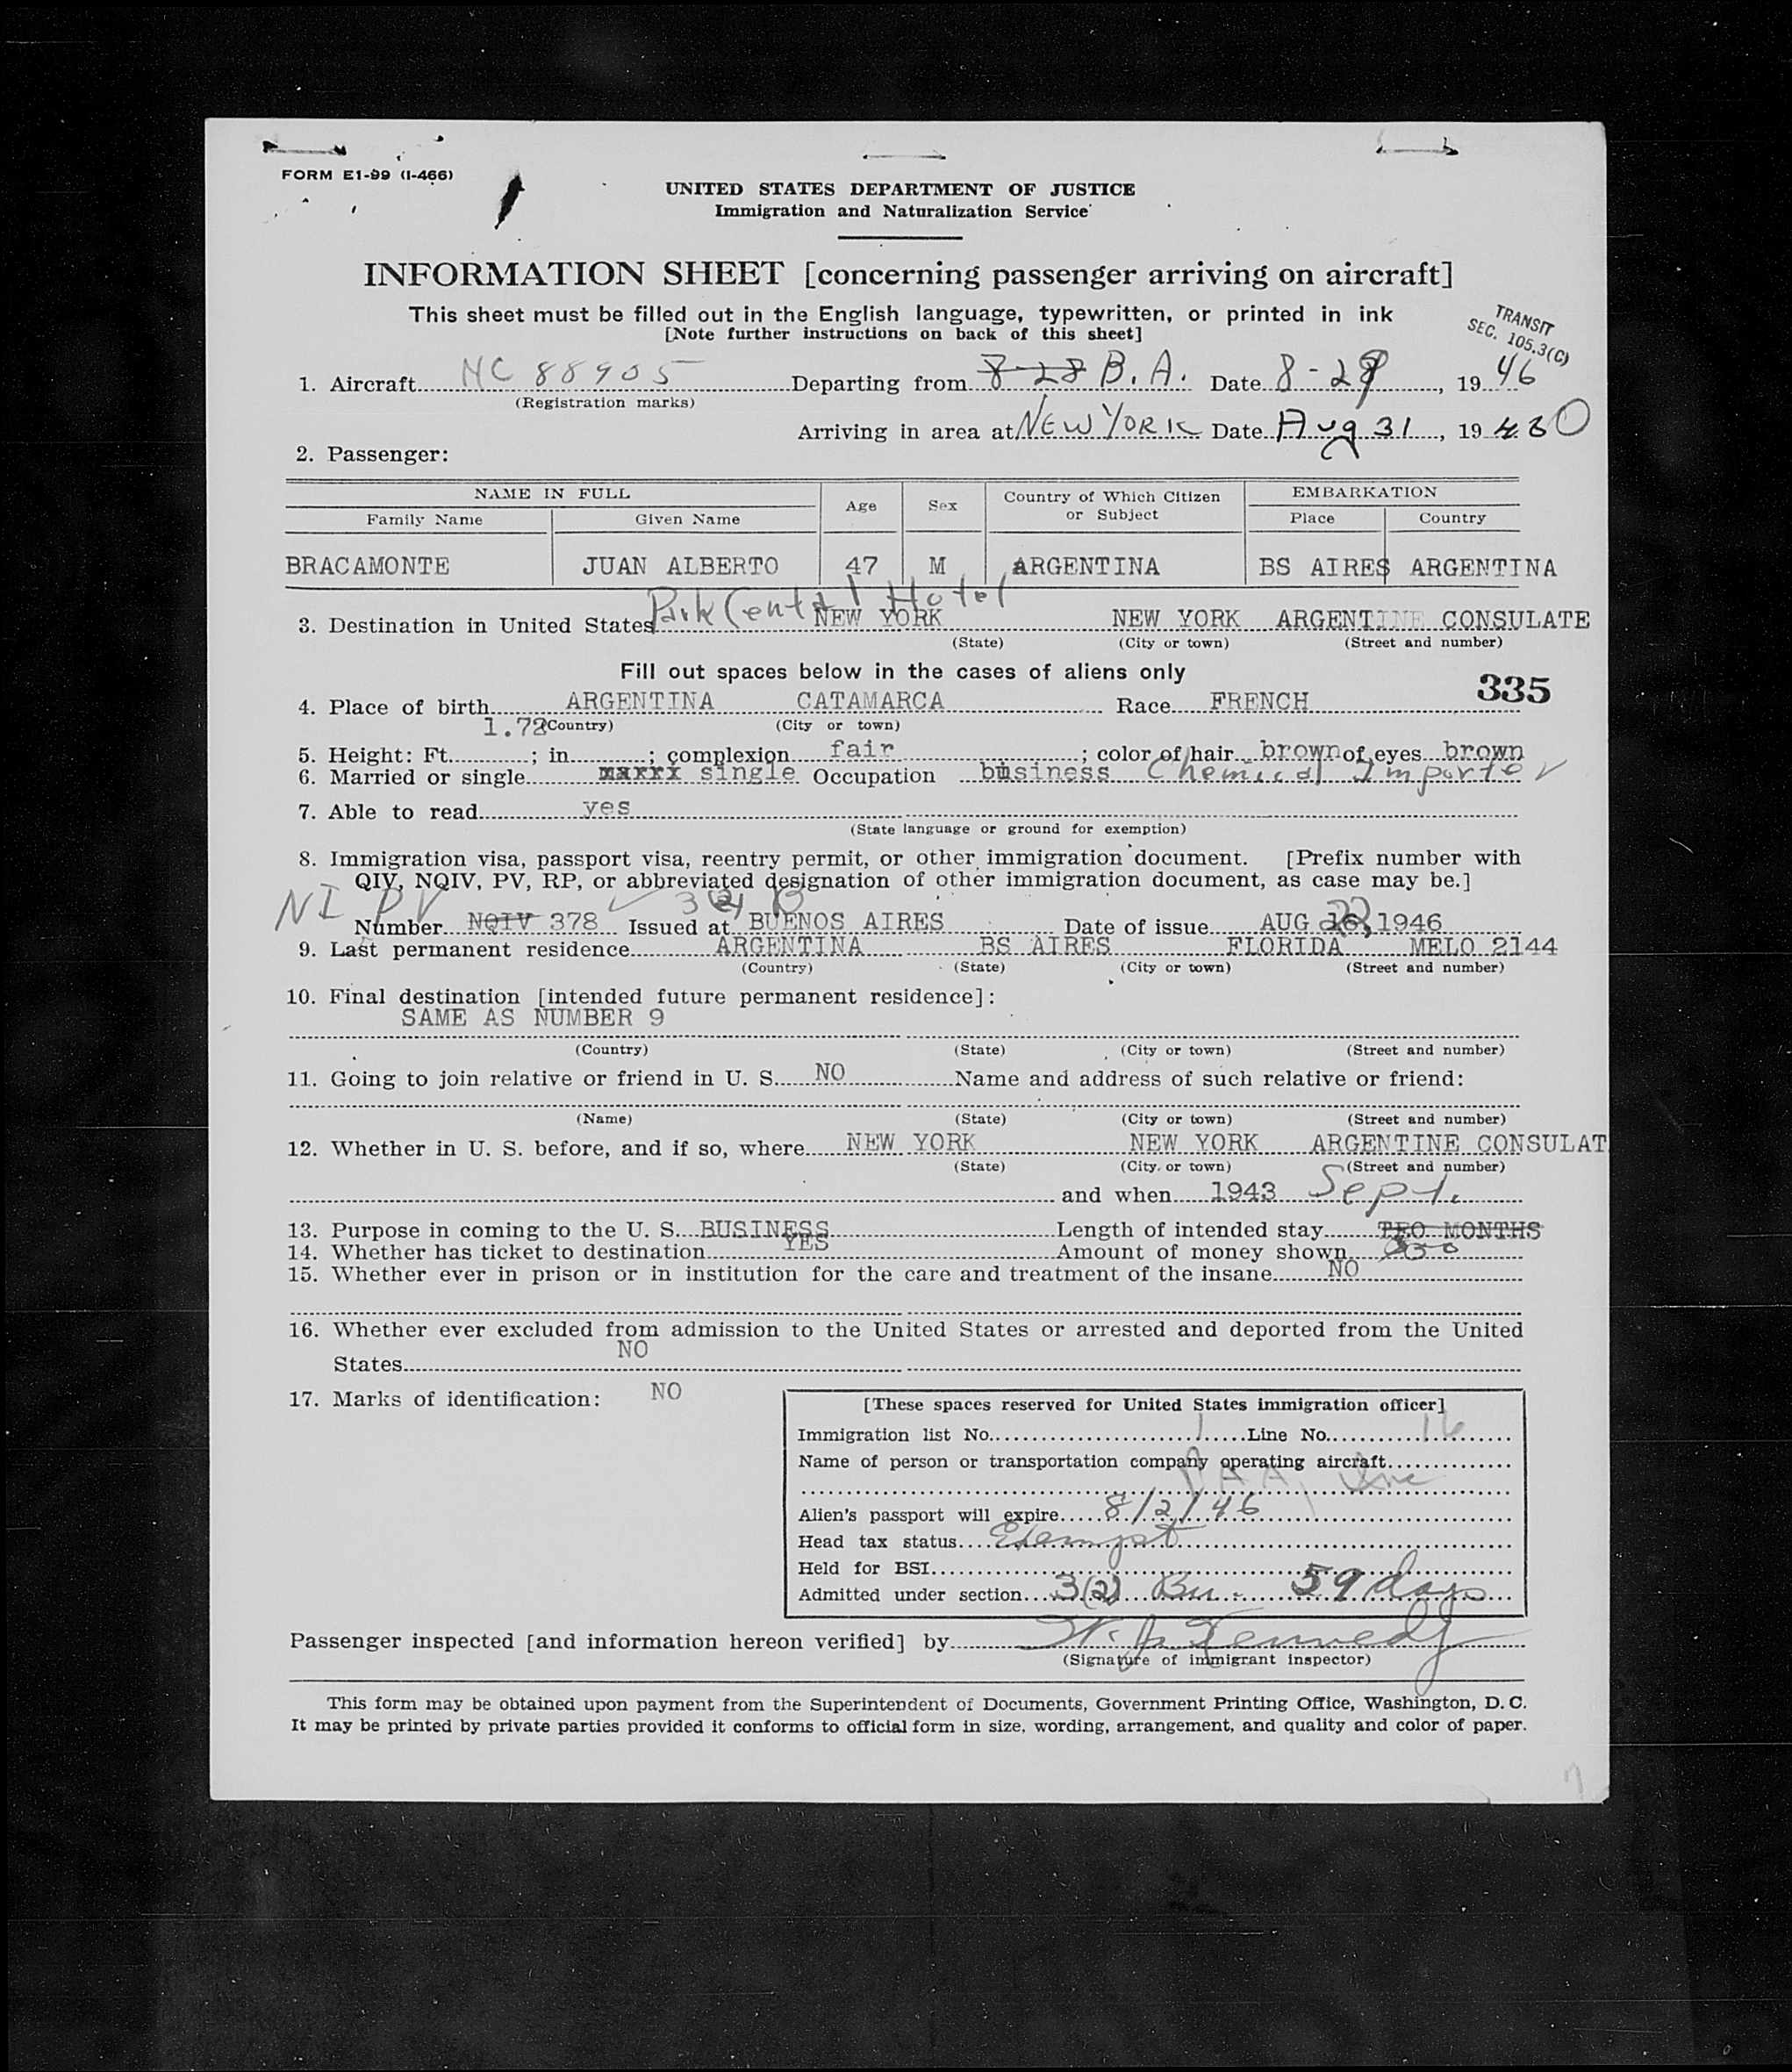 FORM E1-99 (I-466)
UNITED STATES DEPARTMENT OF JUSTICE
Immigration and Naturalization Service
INFORMATION SHEET [concerning passenger arriving on aircraft]
This sheet must be filled out in the English language, typewritten, or printed in ink
[Note further instructions on back of this sheet]
TRANSIT
SEC. 105.3(C)
1. Aircraft NC 88905 Departing from 8-28 B.A. Date 8-29, 1946
(Registration marks)
Arriving in area at NEW YORK Date Aug 31, 19
2. Passenger:
NAME IN FULL Age Sex Country of Which Citizen or Subject EMBARKATION
Family Name Given Name Place Country
BRACAMONTE JUAN ALBERTO 47 M ARGENTINA BS AIRES ARGENTINA
Park Central Hotel
3. Destination in United States NEW YORK NEW YORK ARGENTINE CONSULATE
(State) (City or town) (Street and number)
Fill out spaces below in the cases of aliens only
335
4. Place of birth ARGENTINA CATAMARCA Race FRENCH
1.72 (Country) (City or town)
5. Height: Ft. ; in. ; complexion fair ; color of hair brown of eyes brown
6. Married or single single Occupation business Chemical Importer
7. Able to read yes
(State language or ground for exemption)
8. Immigration visa, passport visa, reentry permit, or other immigration document. [Prefix number with
QIV, NQIV, PV, RP, or abbreviated designation of other immigration document, as case may be.]
NI PV 3(2) B
Number NQIV 378 Issued at BUENOS AIRES Date of issue AUG 22, 1946
9. Last permanent residence ARGENTINA BS AIRES FLORIDA MELO 2144
(Country) (State) (City or town) (Street and number)
10. Final destination [intended future permanent residence]:
SAME AS NUMBER 9
(Country) (State) (City or town) (Street and number)
11. Going to join relative or friend in U. S. NO Name and address of such relative or friend:
(Name) (State) (City or town) (Street and number)
12. Whether in U. S. before, and if so, where NEW YORK NEW YORK ARGENTINE CONSULAT
(State) (City or town) (Street and number)
and when 1943 Sept.
13. Purpose in coming to the U. S. BUSINESS Length of intended stay TEO MONTHS
14. Whether has ticket to destination YES Amount of money shown
15. Whether ever in prison or in institution for the care and treatment of the insane NO
16. Whether ever excluded from admission to the United States or arrested and deported from the United
States NO
17. Marks of identification: NO
[These spaces reserved for United States immigration officer]
Immigration list No. 1 Line No. 16
Name of person or transportation company operating aircraft
PAA, Inc
Alien's passport will expire 8/2/46
Head tax status Exempt
Held for BSI
Admitted under section 3(2) Bu. 59 days
Passenger inspected [and information hereon verified] by W. J. Kennedy
(Signature of immigrant inspector)
This form may be obtained upon payment from the Superintendent of Documents, Government Printing Office, Washington, D. C.
It may be printed by private parties provided it conforms to official form in size, wording, arrangement, and quality and color of paper.